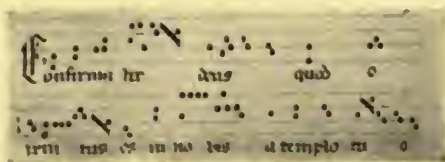 Confirma hoc deus quod o
tus es in no bis a templo tu o